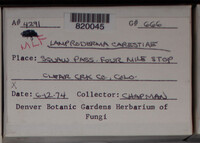 A# 4291 820045 C# 666
MLF LAMPRODERMA CARESTIAE
Place: SQUAW PASS. FOUR MILE STOP
CLEAR CRK CO, COLO
X
Date: 6-12-74 Collector: CHAPMAN
Denver Botanic Gardens Herbarium of
Fungi